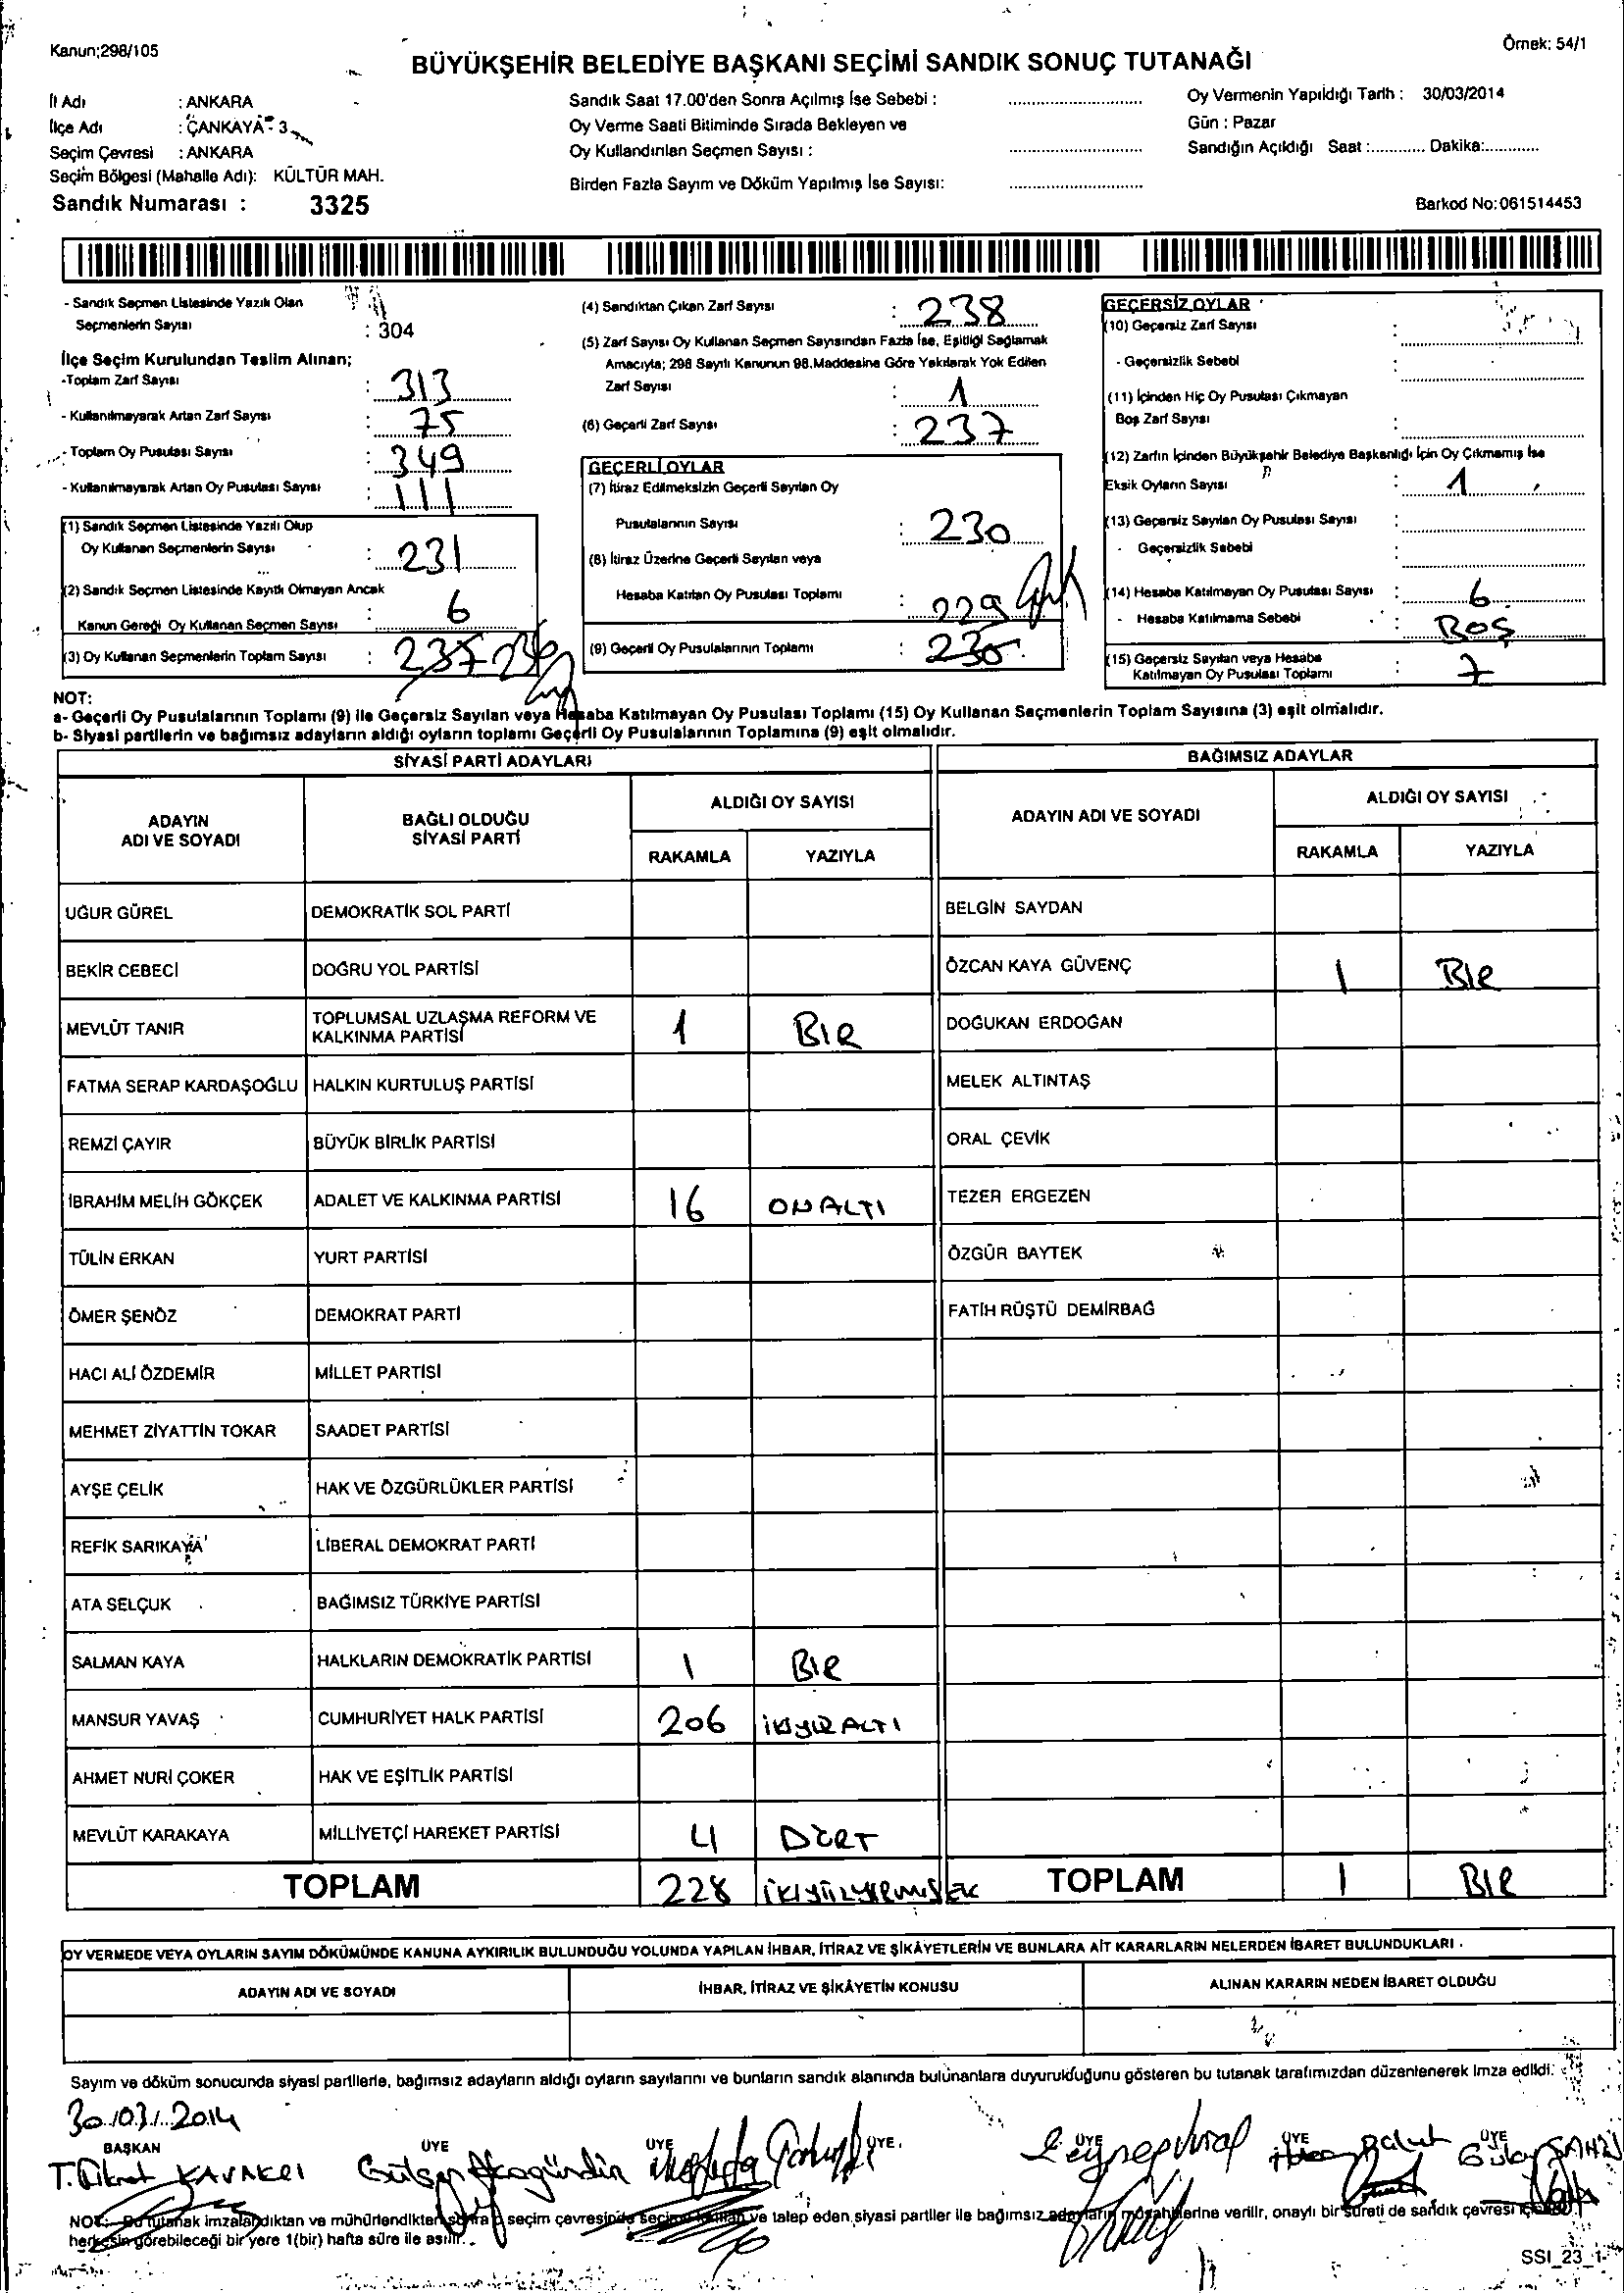 Kanun;298/105
Örnek: 54/1
BÜYÜKŞEHİR BELEDİYE BAŞKANI SEÇİMİ SANDIK SONUÇ TUTANAĞI
İl Adı : ANKARA
İlçe Adı : ÇANKAYA - 3
Seçim Çevresi : ANKARA
Seçim Bölgesi (Mahalle Adı): KÜLTÜR MAH.
Sandık Numarası : 3325
Sandık Saat 17.00'den Sonra Açılmış İse Sebebi :
Oy Verme Saati Bitiminde Sırada Bekleyen ve
Oy Kullandırılan Seçmen Sayısı :
Birden Fazla Sayım ve Döküm Yapılmış İse Sayısı:
Oy Vermenin Yapıldığı Tarih : 30/03/2014
Gün : Pazar
Sandığın Açıldığı Saat :............ Dakika:............
Barkod No:061514453
- Sandık Seçmen Listesinde Yazılı Olan
Seçmenlerin Sayısı : 304
İlçe Seçim Kurulundan Teslim Alınan;
-Toplam Zarf Sayısı : 313
- Kullanılmayarak Artan Zarf Sayısı : 75
- Toplam Oy Pusulası Sayısı : 349
- Kullanılmayarak Artan Oy Pusulası Sayısı : 111
(1) Sandık Seçmen Listesinde Yazılı Olup
Oy Kullanan Seçmenlerin Sayısı : 231
(2) Sandık Seçmen Listesinde Kayıtlı Olmayan Ancak
Kanun Gereği Oy Kullanan Seçmen Sayısı : 6
(3) Oy Kullanan Seçmenlerin Toplam Sayısı : 237 236
(4) Sandıktan Çıkan Zarf Sayısı : 238
(5) Zarf Sayısı Oy Kullanan Seçmen Sayısından Fazla İse, Eşitliği Sağlamak
Amacıyla; 298 Sayılı Kanunun 98.Maddesine Göre Yakılarak Yok Edilen
Zarf Sayısı : 1
(6) Geçerli Zarf Sayısı : 237
GEÇERLİ OYLAR
(7) İtiraz Edilmeksizin Geçerli Sayılan Oy
Pusulalarının Sayısı : 230
(8) İtiraz Üzerine Geçerli Sayılan veya
Hesaba Katılan Oy Pusulası Toplamı : 229
(9) Geçerli Oy Pusulalarının Toplamı : 230
GEÇERSİZ OYLAR
(10) Geçersiz Zarf Sayısı :
- Geçersizlik Sebebi :
(11) İçinden Hiç Oy Pusulası Çıkmayan
Boş Zarf Sayısı :
(12) Zarfın İçinden Büyükşehir Belediye Başkanlığı İçin Oy Çıkmamış İse
Eksik Oyların Sayısı : 1
(13) Geçersiz Sayılan Oy Pusulası Sayısı :
- Geçersizlik Sebebi :
(14) Hesaba Katılmayan Oy Pusulası Sayısı : 6
- Hesaba Katılmama Sebebi : BOŞ
(15) Geçersiz Sayılan veya Hesaba
Katılmayan Oy Pusulası Toplamı : 7
NOT:
a- Geçerli Oy Pusulalarının Toplamı (9) ile Geçersiz Sayılan veya Hesaba Katılmayan Oy Pusulası Toplamı (15) Oy Kullanan Seçmenlerin Toplam Sayısına (3) eşit olmalıdır.
b- Siyasi partilerin ve bağımsız adayların aldığı oyların toplamı Geçerli Oy Pusulalarının Toplamına (9) eşit olmalıdır.
SİYASİ PARTİ ADAYLARI
BAĞIMSIZ ADAYLAR
ADAYIN ADI VE SOYADI
BAĞLI OLDUĞU SİYASİ PARTİ
ALDIĞI OY SAYISI
RAKAMLA YAZIYLA
ADAYIN ADI VE SOYADI
ALDIĞI OY SAYISI
RAKAMLA YAZIYLA
UĞUR GÜREL DEMOKRATİK SOL PARTİ BELGİN SAYDAN
BEKİR CEBECİ DOĞRU YOL PARTİSİ ÖZCAN KAYA GÜVENÇ 1 BIR
MEVLÜT TANIR TOPLUMSAL UZLAŞMA REFORM VE KALKINMA PARTİSİ 1 BIR DOĞUKAN ERDOĞAN
FATMA SERAP KARDAŞOĞLU HALKIN KURTULUŞ PARTİSİ MELEK ALTINTAŞ
REMZİ ÇAYIR BÜYÜK BİRLİK PARTİSİ ORAL ÇEVİK
İBRAHİM MELİH GÖKÇEK ADALET VE KALKINMA PARTİSİ 16 ONALTI TEZER ERGEZEN
TÜLİN ERKAN YURT PARTİSİ ÖZGÜR BAYTEK
ÖMER ŞENÖZ DEMOKRAT PARTİ FATİH RÜŞTÜ DEMİRBAĞ
HACI ALİ ÖZDEMİR MİLLET PARTİSİ
MEHMET ZİYATTİN TOKAR SAADET PARTİSİ
AYŞE ÇELİK HAK VE ÖZGÜRLÜKLER PARTİSİ
REFİK SARIKAYA LİBERAL DEMOKRAT PARTİ
ATA SELÇUK BAĞIMSIZ TÜRKİYE PARTİSİ
SALMAN KAYA HALKLARIN DEMOKRATİK PARTİSİ 1 BIR
MANSUR YAVAŞ CUMHURİYET HALK PARTİSİ 206 İKİYÜZALTI
AHMET NURİ ÇOKER HAK VE EŞİTLİK PARTİSİ
MEVLÜT KARAKAYA MİLLİYETÇİ HAREKET PARTİSİ 4 DÖRT
TOPLAM 228 TOPLAM 1 BIR
OY VERMEDE VEYA OYLARIN SAYIM DÖKÜMÜNDE KANUNA AYKIRILIK BULUNDUĞU YOLUNDA YAPILAN İHBAR, İTİRAZ VE ŞİKÂYETLERİN VE BUNLARA AİT KARARLARIN NELERDEN İBARET BULUNDUKLARI .
ADAYIN ADI VE SOYADI İHBAR, İTİRAZ VE ŞİKÂYETİN KONUSU ALINAN KARARIN NEDEN İBARET OLDUĞU
Sayım ve döküm sonucunda siyasi partilerle, bağımsız adayların aldığı oyların sayılarını ve bunların sandık alanında bulunanlara duyurulduğunu gösteren bu tutanak tarafımızdan düzenlenerek imza edildi.
30/03/2014
BAŞKAN ÜYE ÜYE ÜYE ÜYE ÜYE ÜYE
NOT:- Bu tutanak imzalandıktan ve mühürlendikten sonra seçim çevresinde seçime katılan ve talep eden siyasi partiler ile bağımsız adayların müşahitlerine verilir, onaylı bir sureti de sandık çevresi
herkesin görebileceği bir yere 1(bir) hafta süre ile asılır.
SSI_23_1